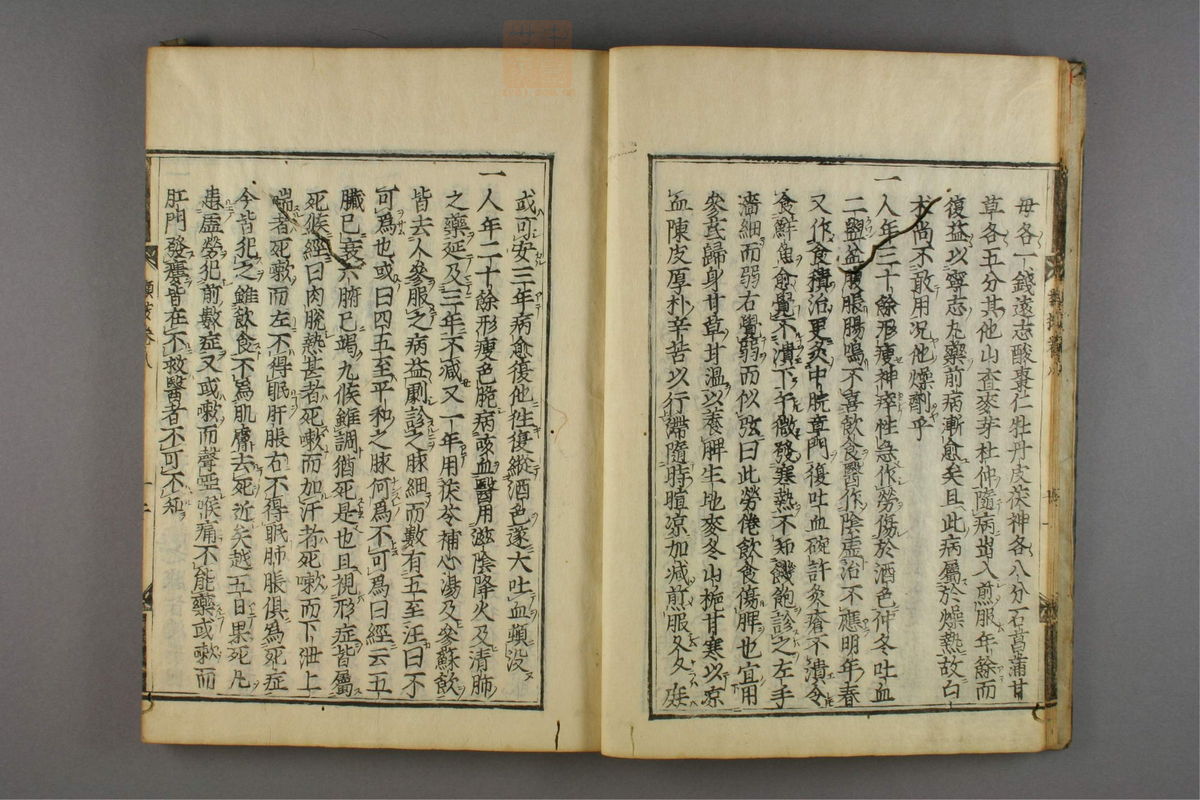 母各一錢遠志酸棗仁牡丹皮茯神各八分石菖蒲甘
草各五分其他山查麥芽杜仲隨病出入煎服年餘而
復益以寧志丸藥前病漸愈矣且此病屬於燥熱故白
朮尚不敢用況他燥劑乎
一人年三十餘形瘦神瘁性急作勞傷於酒色仲冬吐血
二盥盆腹脹腸鳴不喜飲食醫作陰虛治不應明年春
又作食積治更灸中脘章門復吐血碗許灸瘡不潰令
食鮮魚愈覺不潰下午微發寒熱不知饑飽診之左手
濇細而弱右覺弱而似弦曰此勞倦飲食傷脾也宜用
參芪歸身甘草甘溫以養脾生地麥冬山梔甘寒以凉
血陳皮厚朴辛苦以行滯隨時暄凉加減煎服久久庶
或可安三年病愈復他往復縱酒色遂大吐血頓沒
一人年二十餘形瘦色脆病咳血醫用滋陰降火及清肺
之藥延及三年不減又一年用茯苓補心湯及參蘇飲
皆去人參服之病益劇診之脉細而數有五至汪曰不
可爲也或曰四五至平和之脉何爲不可爲曰經云五
臟已衰六腑已竭九候雖調猶死是也且視形症皆屬
死候經曰肉脫熱甚者死嗽而加汗者死嗽而下泄上
喘者死嗽而左不得眠肝脹右不得眠肺脹俱爲死症
今皆犯之雖飲食不爲肌膚去死近矣越五日果死凡
患虛勞犯前數症又或嗽而聲啞喉痛不能藥或嗽而
肛門發癰皆在不救醫者不可不知